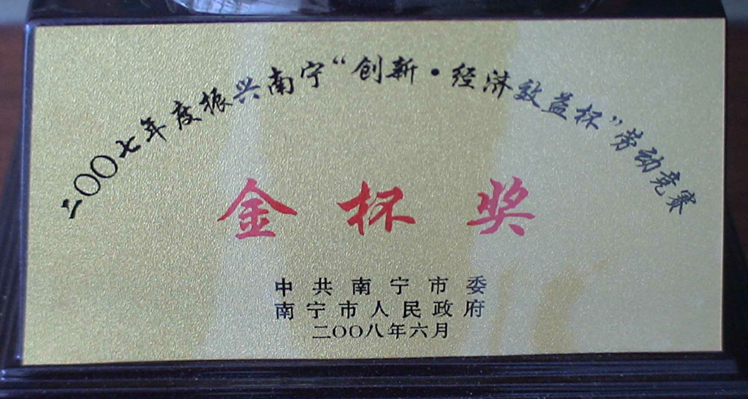 二〇〇七年度振兴南宁“创新·经济效益杯”劳动竞赛
金杯奖
中共南宁市委
南宁市人民政府
二〇〇八年六月